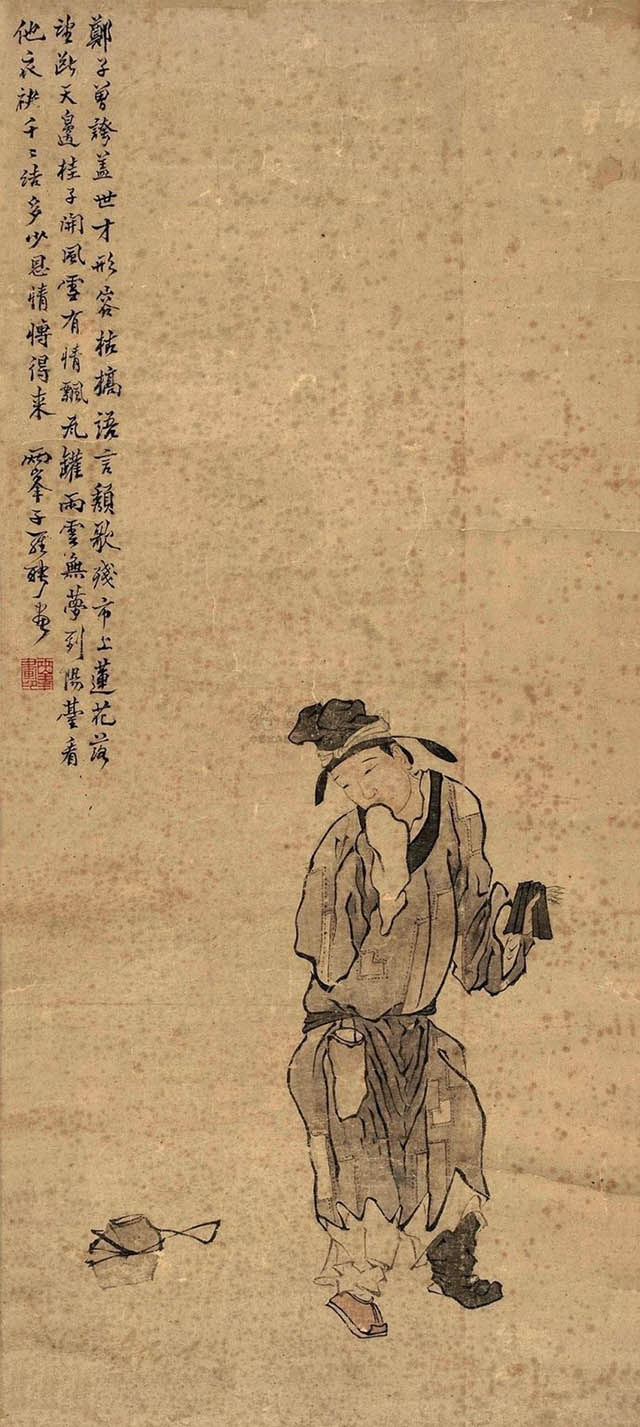 鄭子曾誇蓋世才形容枯槁語言頹歌殘市上蓮花落
望斷天邊桂子開風雪有情飄瓦罐雨雲無夢到陽臺看
他衣袂千〻結多少恩情愽得来 兩峯子羅聘畫